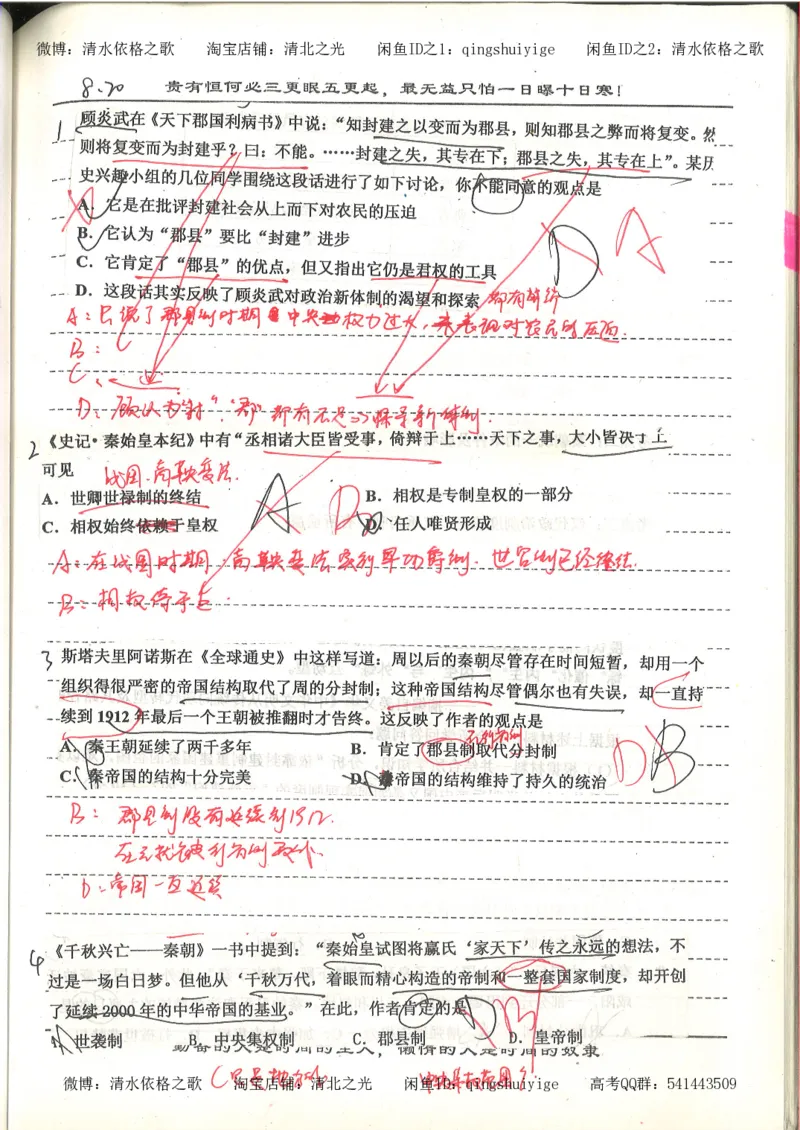 微博：清水依格之歌 淘宝店铺：清北之光 闲鱼ID之1：qingshuiyige 闲鱼ID之2：清水依格之歌
8.20 贵有恒何必三更眠五更起，最无益只怕一日曝十日寒！
1 顾炎武在《天下郡国利病书》中说：“知封建之以变而为郡县，则知郡县之弊而将复变。然
则将复变而为封建乎？曰：不能。……封建之失，其专在下；郡县之失，其专在上”。某历
史兴趣小组的几位同学围绕这段话进行了如下讨论，你不能同意的观点是
A．它是在批评封建社会从上而下对农民的压迫
B．它认为“郡县”要比“封建”进步
D A
C．它肯定了“郡县”的优点，但又指出它仍是君权的工具
D．这段话其实反映了顾炎武对政治新体制的渴望和探索
A：只说了郡县制时期中央权力过大，未表现对农民的压迫.
B：
C、
D：顾认为封“”“郡”都有不足
2《史记·秦始皇本纪》中有“丞相诸大臣皆受事，倚辩于上……天下之事，大小皆决于上
可见
战国.商鞅变法.
A．世卿世禄制的终结 B．相权是专制皇权的一部分
A D
C．相权始终依赖于皇权 D．任人唯贤形成
A：在战国时期.商鞅变法实行军功爵制.世官制已经终结.
B：相权
3 斯塔夫里阿诺斯在《全球通史》中这样写道：周以后的秦朝尽管存在时间短暂，却用一个
组织得很严密的帝国结构取代了周的分封制；这种帝国结构尽管偶尔也有失误，却一直持
续到1912年最后一个王朝被推翻时才告终。这反映了作者的观点是
A．秦王朝延续了两千多年 B．肯定了郡县制取代分封制
D B
C．秦帝国的结构十分完美 D．秦帝国的结构维持了持久的统治
B：郡县制没有延续到1912.
在元就被行省制取代.
D：帝国一直延续
4《千秋兴亡——秦朝》一书中提到：“秦始皇试图将嬴氏‘家天下’传之永远的想法，不
过是一场白日梦。但他从‘千秋万代，着眼而精心构造的帝制和一整套国家制度，却开创
了延续2000年的中华帝国的基业。”在此，作者肯定的是
D B
A．世袭制 B．中央集权制 C．郡县制 D．皇帝制
勤奋的人是时间的主人，懒惰的人是时间的奴隶
微博：清水依格之歌 淘宝店铺：清北之光 闲鱼ID：qingshuiyige 高考QQ群：541443509